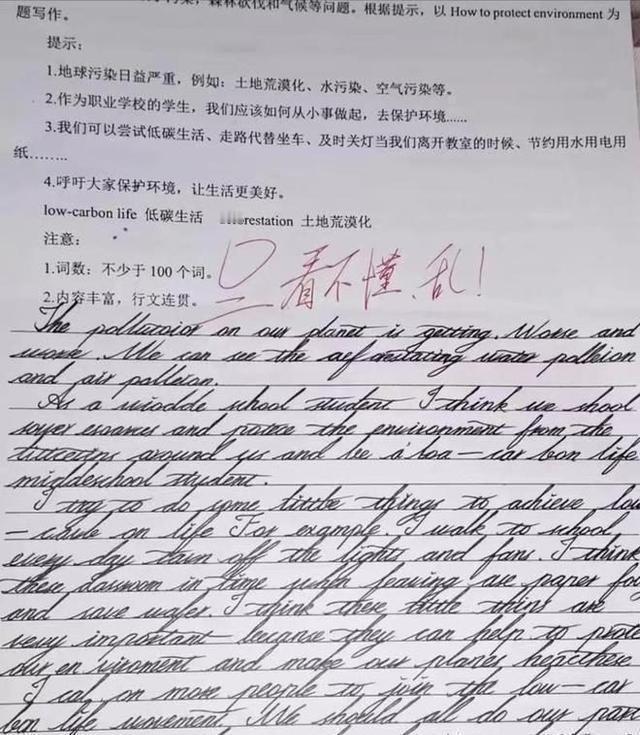 污染，森林砍伐和气候等问题。根据提示，以 How to protect environment 为
题写作。
提示：
1.地球污染日益严重，例如：土地荒漠化、水污染、空气污染等。
2.作为职业学校的学生，我们应该如何从小事做起，去保护环境......
3.我们可以尝试低碳生活、走路代替坐车、及时关灯当我们离开教室的时候、节约用水用电用
纸……..
4.呼吁大家保护环境，让生活更美好。
low-carbon life 低碳生活 restation 土地荒漠化
注意：
1.词数：不少于 100 个词。
2.内容丰富，行文连贯。
0
看不懂、乱！
The pollutaior on our planet is getting. Worse and
worse. We can see the water polleion
and air polleian.
As a widde whool student I think we shool
and the environment from the
around us and be a loa- car bon life
middeschool student.
I try to do some little things to achieve low
- on life For example. I walk to whool
every day turn off the lights and fans. I think
these classroom in time when leaving are paper for
and save wafer. I think these little thins are
very important because they can help to
our en viroment and make our planes
I cal on more people to join the low- car
bon life movement. We should all do our part